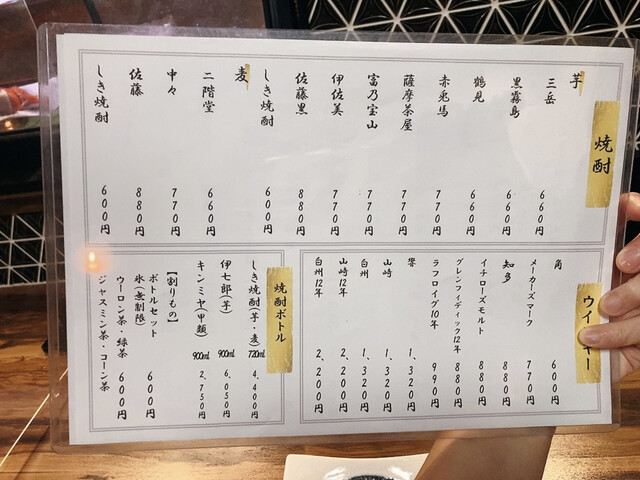 焼酎
芋
三岳 660円
黒霧島 660円
鶴見 660円
赤兎馬 770円
薩摩茶屋 770円
富乃宝山 770円
伊佐美 770円
佐藤黒 880円
しき焼酎 600円
麦
二階堂 660円
中々 770円
佐藤 880円
しき焼酎 600円
ウイ キー
角 600円
メーカーズマーク 770円
知多 880円
イチローズモルト 880円
グレンフィディック12年 880円
ラフロイグ10年 990円
響 1,320円
山崎 1,320円
白州 1,320円
山崎12年 2,200円
白州12年 2,200円
焼酎ボトル
しき焼酎(芋・麦) 720ml 4,400円
伊七郎(芋) 900ml 6,050円
キンミヤ(甲類) 900ml 2,750円
【割りもの】
ボトルセット
氷(無制限) 600円
ウーロン茶・緑茶
ジャスミン茶・コーン茶 600円